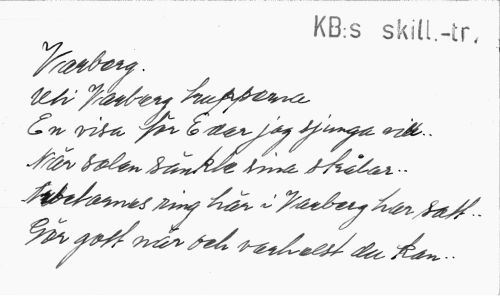 KB:s skill.-tr.
Varberg.
Uti Varberg trupperna
En visa för Eder jag sjunga vill..
När solen sänkte sina strålar..
Arbetarnes ring här i Varberg har satt..
Gör gott när och varhelst du kan..